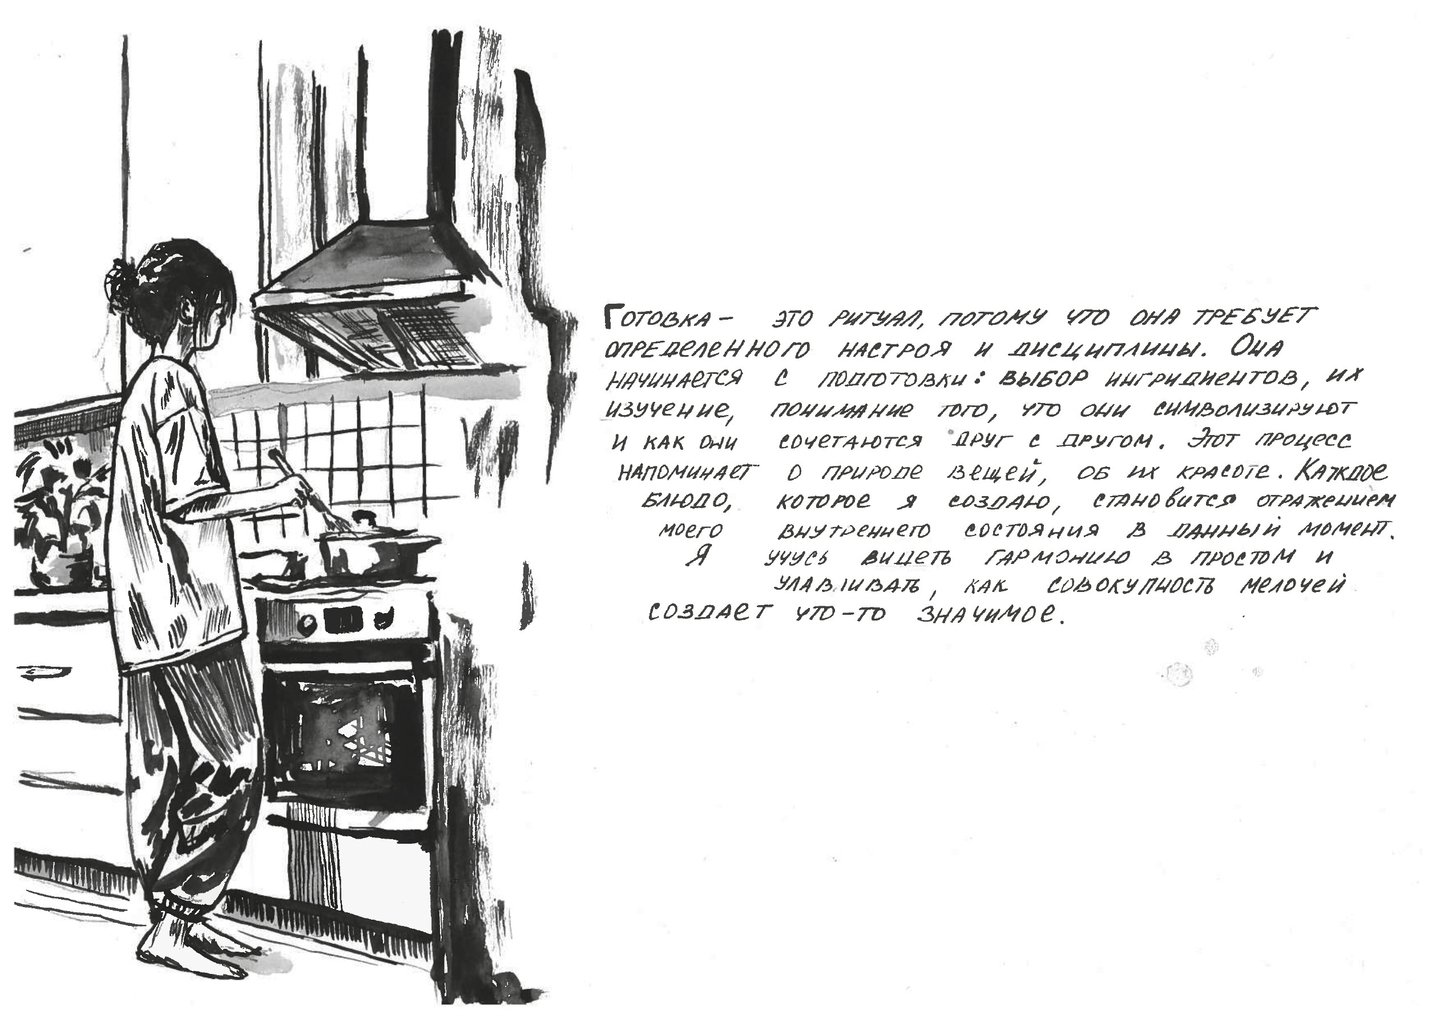 Готовка – это ритуал, потому что она требует
определенного настроя и дисциплины. Она
начинается с подготовки: выбор ингридиентов, их
изучение, понимание того, что они символизируют
и как они сочетаются друг с другом. Этот процесс
напоминает о природе вещей, об их красоте. Каждое
блюдо, которое я создаю, становится отражением
моего внутреннего состояния в данный момент.
Я учусь видеть гармонию в простом и
улавливать, как совокупность мелочей
создает что-то значимое.